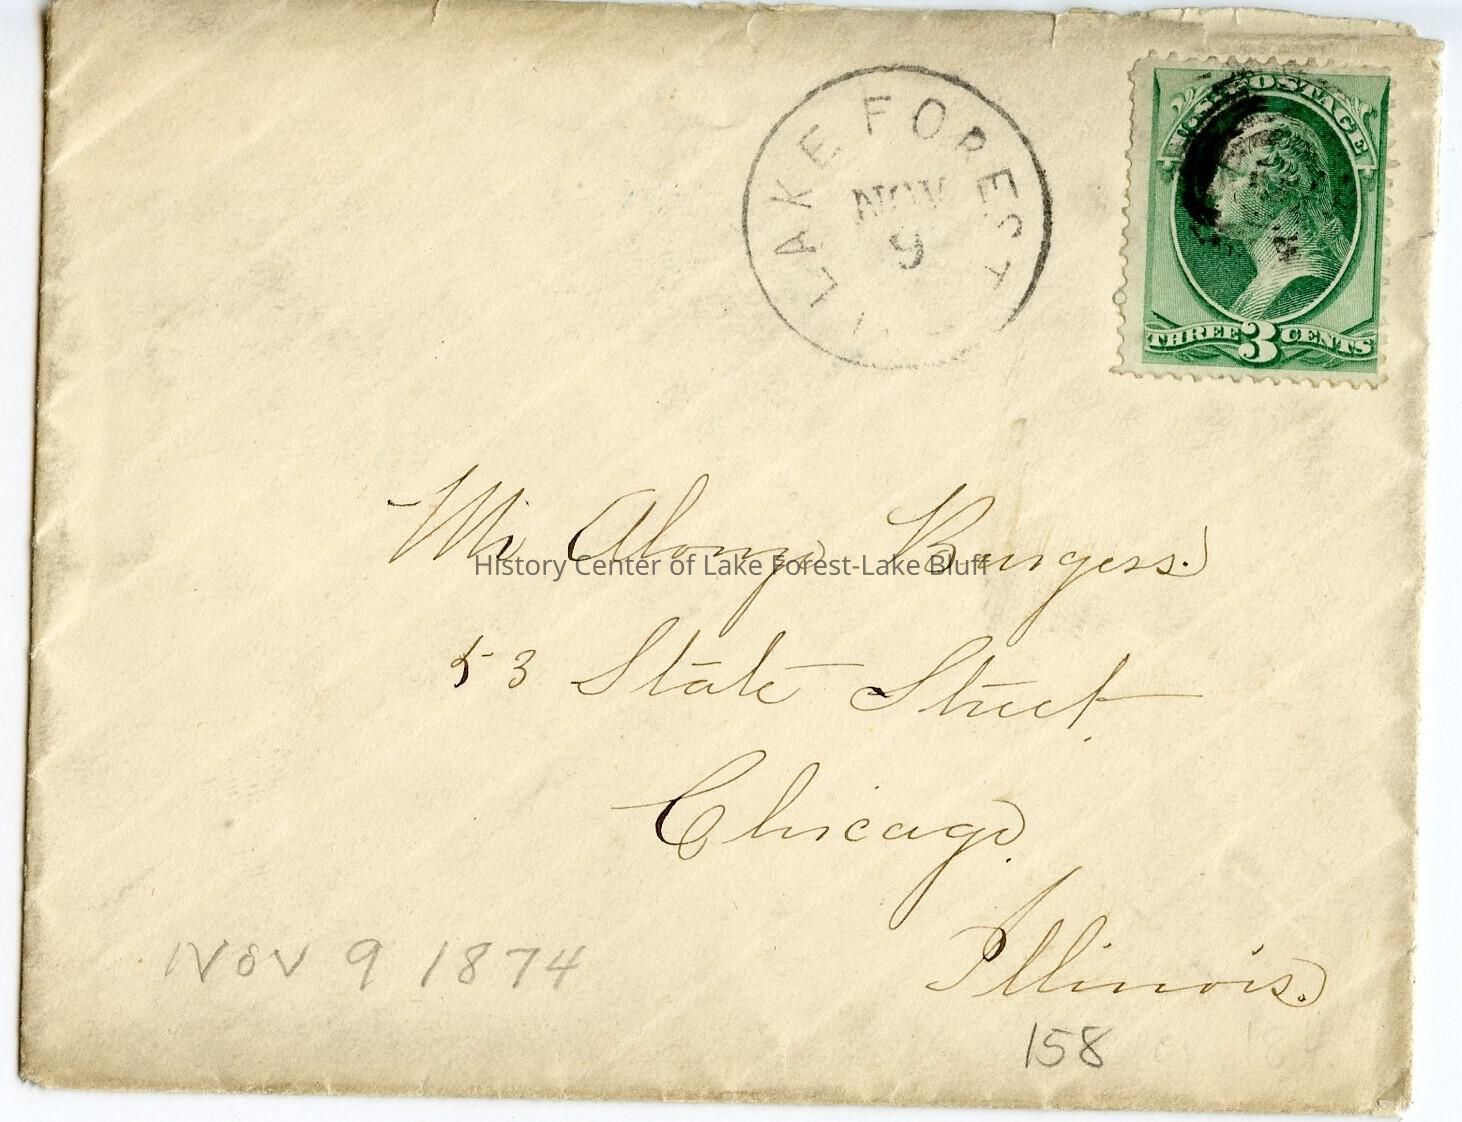 LAKE FOREST
NOV
9
U.S. POSTAGE
THREE 3 CENTS
Mr Alonzo Burgess.
History Center of Lake Forest-Lake Bluff
53 State Street
Chicago
Illinois.
NOV 9 1874
158